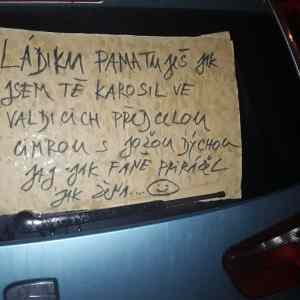 LÁDIKU PAMATUJEŠ JAK
JSEM TĚ KAROSIL VE
VALDICÍCH PŘED CELOU
CIMROU S JOŽOU DÝCHOU
JAK FANE
JAK ŽENA...